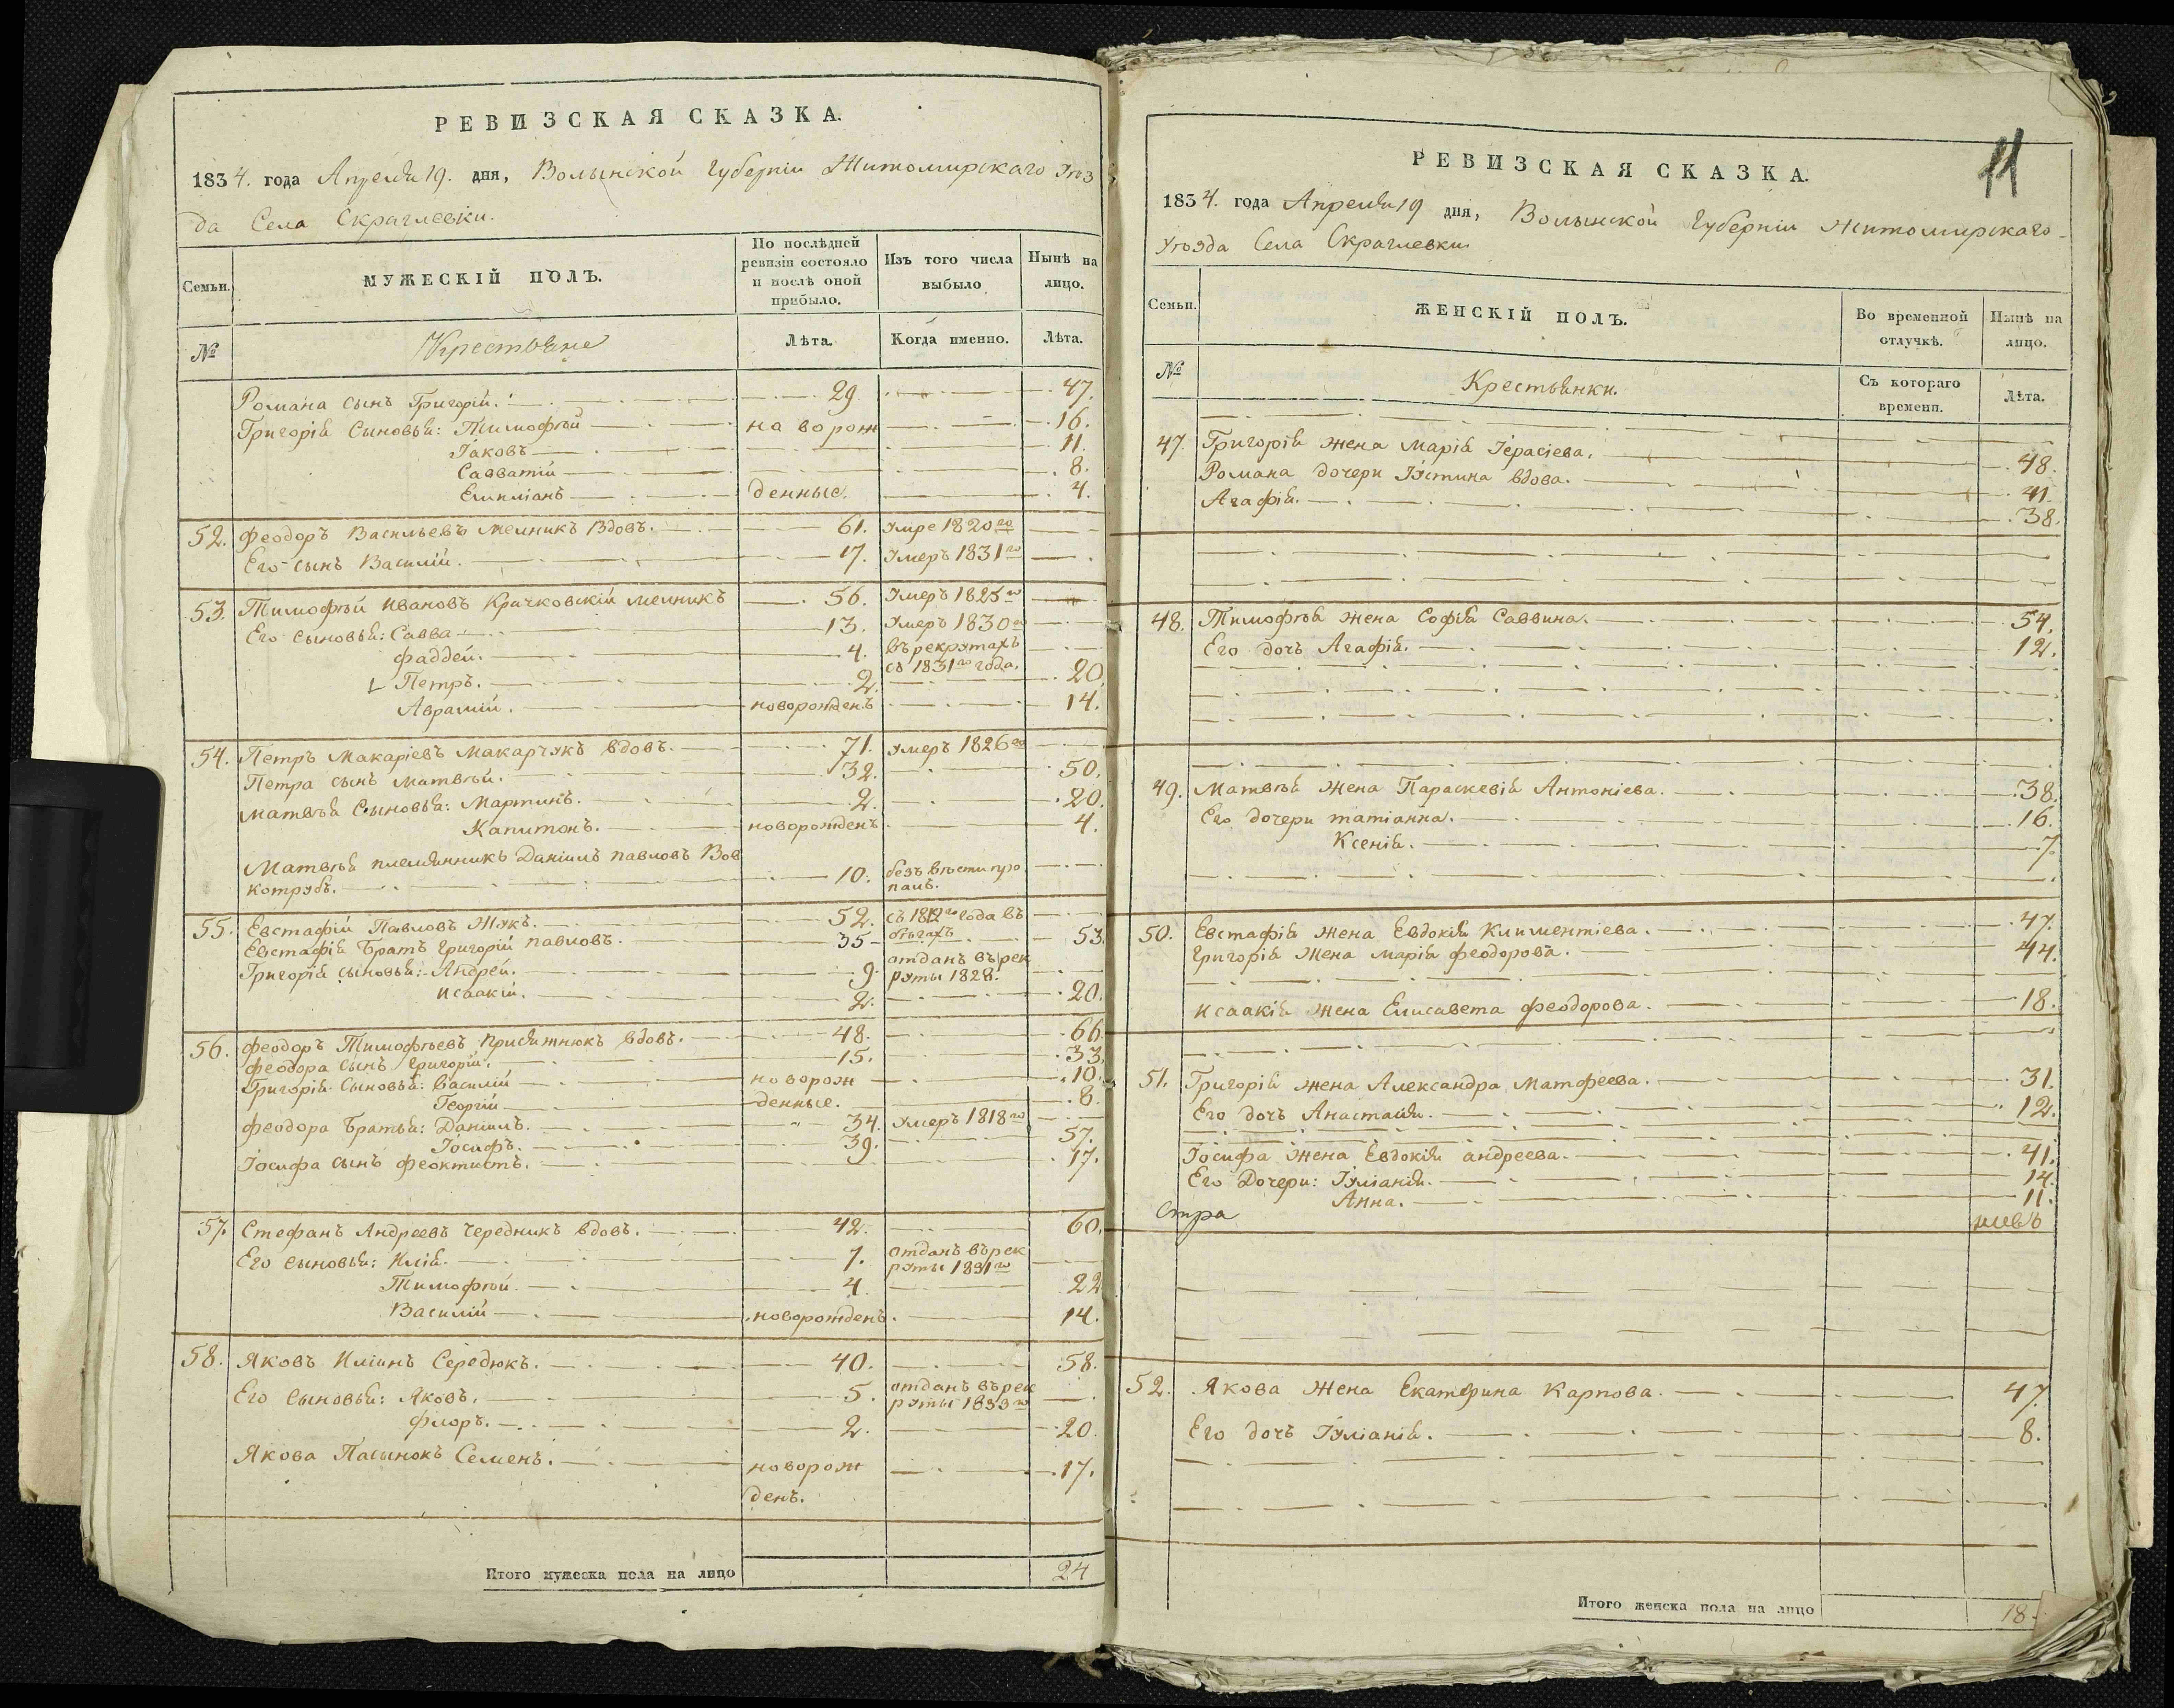 РЕВИЗСКАЯ СКАЗКА.
1834. года Апреля 19. дня, Волынской Губерніи Житомирскаго уѣз
да Села Скраглевки.
Семьи.
МУЖЕСКІЙ ПОЛЪ.
По послѣдней ревизіи состояло и послѣ оной прибыло.
Изъ того числа выбыло
Нынѣ на лицо.
№
Крестьяне
Лѣта.
Когда именно.
Лѣта.
Романа сынъ Григорій. 29 47.
Григорія Сыновья: Тимофѣй на ворож 16.
Іаковъ 11.
Савватій 8.
Емиліанъ денные. 4.
52. Феодоръ Васильевъ мелникъ Вдовъ. 61. умре 1820го
Его сынъ Василій. 17. Умеръ 1831го
53. Тимофѣй Ивановъ Крачковскій мелникъ 56. Умеръ 1825го
Его сыновья: Савва 13. Умеръ 1830го
Фаддей. 4. въ рекрутахъ
съ 1831го года.
Петръ. 2. 20.
Аврамій. новорожденъ 14.
54. Петръ Макаріевъ Макарчукъ вдовъ. 71. умеръ 1826го
Петра сынъ Матвѣй. 32. 50.
Матвѣя Сыновья: Мартинъ. 2. 20.
Капитонъ. новорожденъ 4.
Матвѣя племянникъ Даніилъ Павловъ Вов
котрубъ. 10. безъ вѣсти про
палъ.
55. Евстафій Павловъ Жукъ. 52. съ 1812го года въ
бѣгахъ
Евстафія Братъ Григорій Павловъ. 35 53.
Григорія сыновья: Андрей. 9. отданъ въ рек
руты 1828.
Исаакій. 2. 20.
56. Феодоръ Тимофѣевъ Присяжнюкъ вдовъ. 48. 66.
Феодора Сынъ Григорій. 15. 33.
Григорія Сыновья: Василій новорож 10.
Георгій денные. 8.
Феодора Братья: Даніилъ. 34. умеръ 1818го
Іосифъ. 39. 57.
Іосифа сынъ Феоктистъ. 17.
57. Стефанъ Андреевъ Чередникъ вдовъ. 42. 60.
Его сыновья: Илія. 7. отданъ въ рек
руты 1831го
Тимофѣй 4. 22
Василій новорожденъ. 14.
58. Яковъ Иліинъ Середюкъ. 40. 58.
Его Сыновья: Яковъ. 5. отданъ въ рек
руты 1833го
Флоръ. 2. 20.
Якова Пасынокъ Семенъ. новорож 17.
денъ.
Итого мужеска пола на лицо 24
11
РЕВИЗСКАЯ СКАЗКА.
1834. года Апреля 19 дня, Волынской Губерніи Житомирскаго
уѣзда Села Скраглевки
Семьи.
ЖЕНСКІЙ ПОЛЪ.
Во временной отлучкѣ.
Нынѣ на лицо.
№
Крестьянки.
Съ котораго времени.
Лѣта.
47. Григорія жена Марія Герасіева. 48.
Романа дочери Іустина вдова. 41
Агафія. 38.
48. Тимофѣя жена Софія Саввина. 54.
Его дочь Агафія. 12.
49. Матвѣя жена Параскевія Антоніева. 38.
Его дочери татіанна. 16.
Ксенія. 7.
50. Евстафія жена Евдокія Климентіева. 47.
Григорія жена марія феодорова. 44.
Исаакія жена Елисавета феодорова. 18.
51. Григорія жена Александра Матфеева. 31.
Его дочь Анастасія. 12.
Іосифа жена Евдокія андреева. 41.
Его Дочери: Іуліанія. 14.
Анна. 11.
стра
52. Якова жена Екатерина Карпова. 47.
Его дочь Іуліанія. 8.
Итого женска пола на лицо 18.